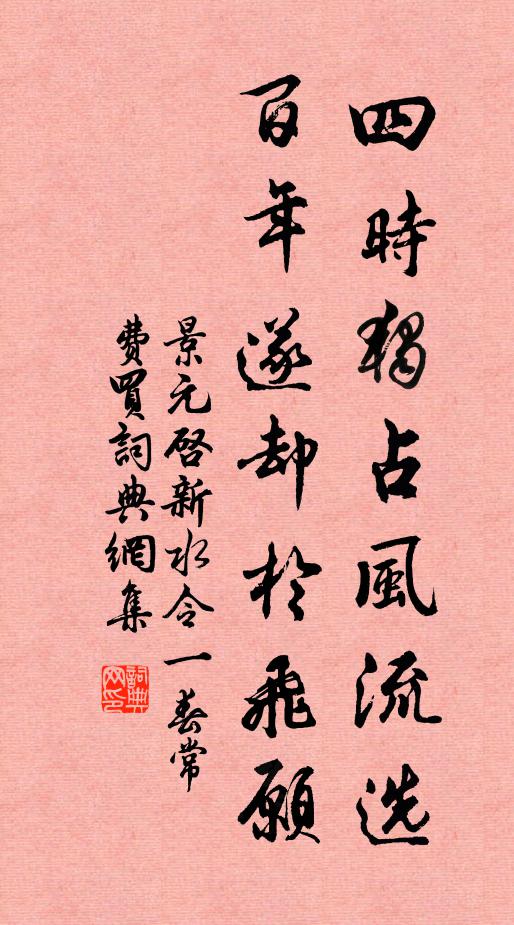 四時獨占風流選
百年遂却於飛願
景元啓新水令一春常
費買詞典網集
詞典網印